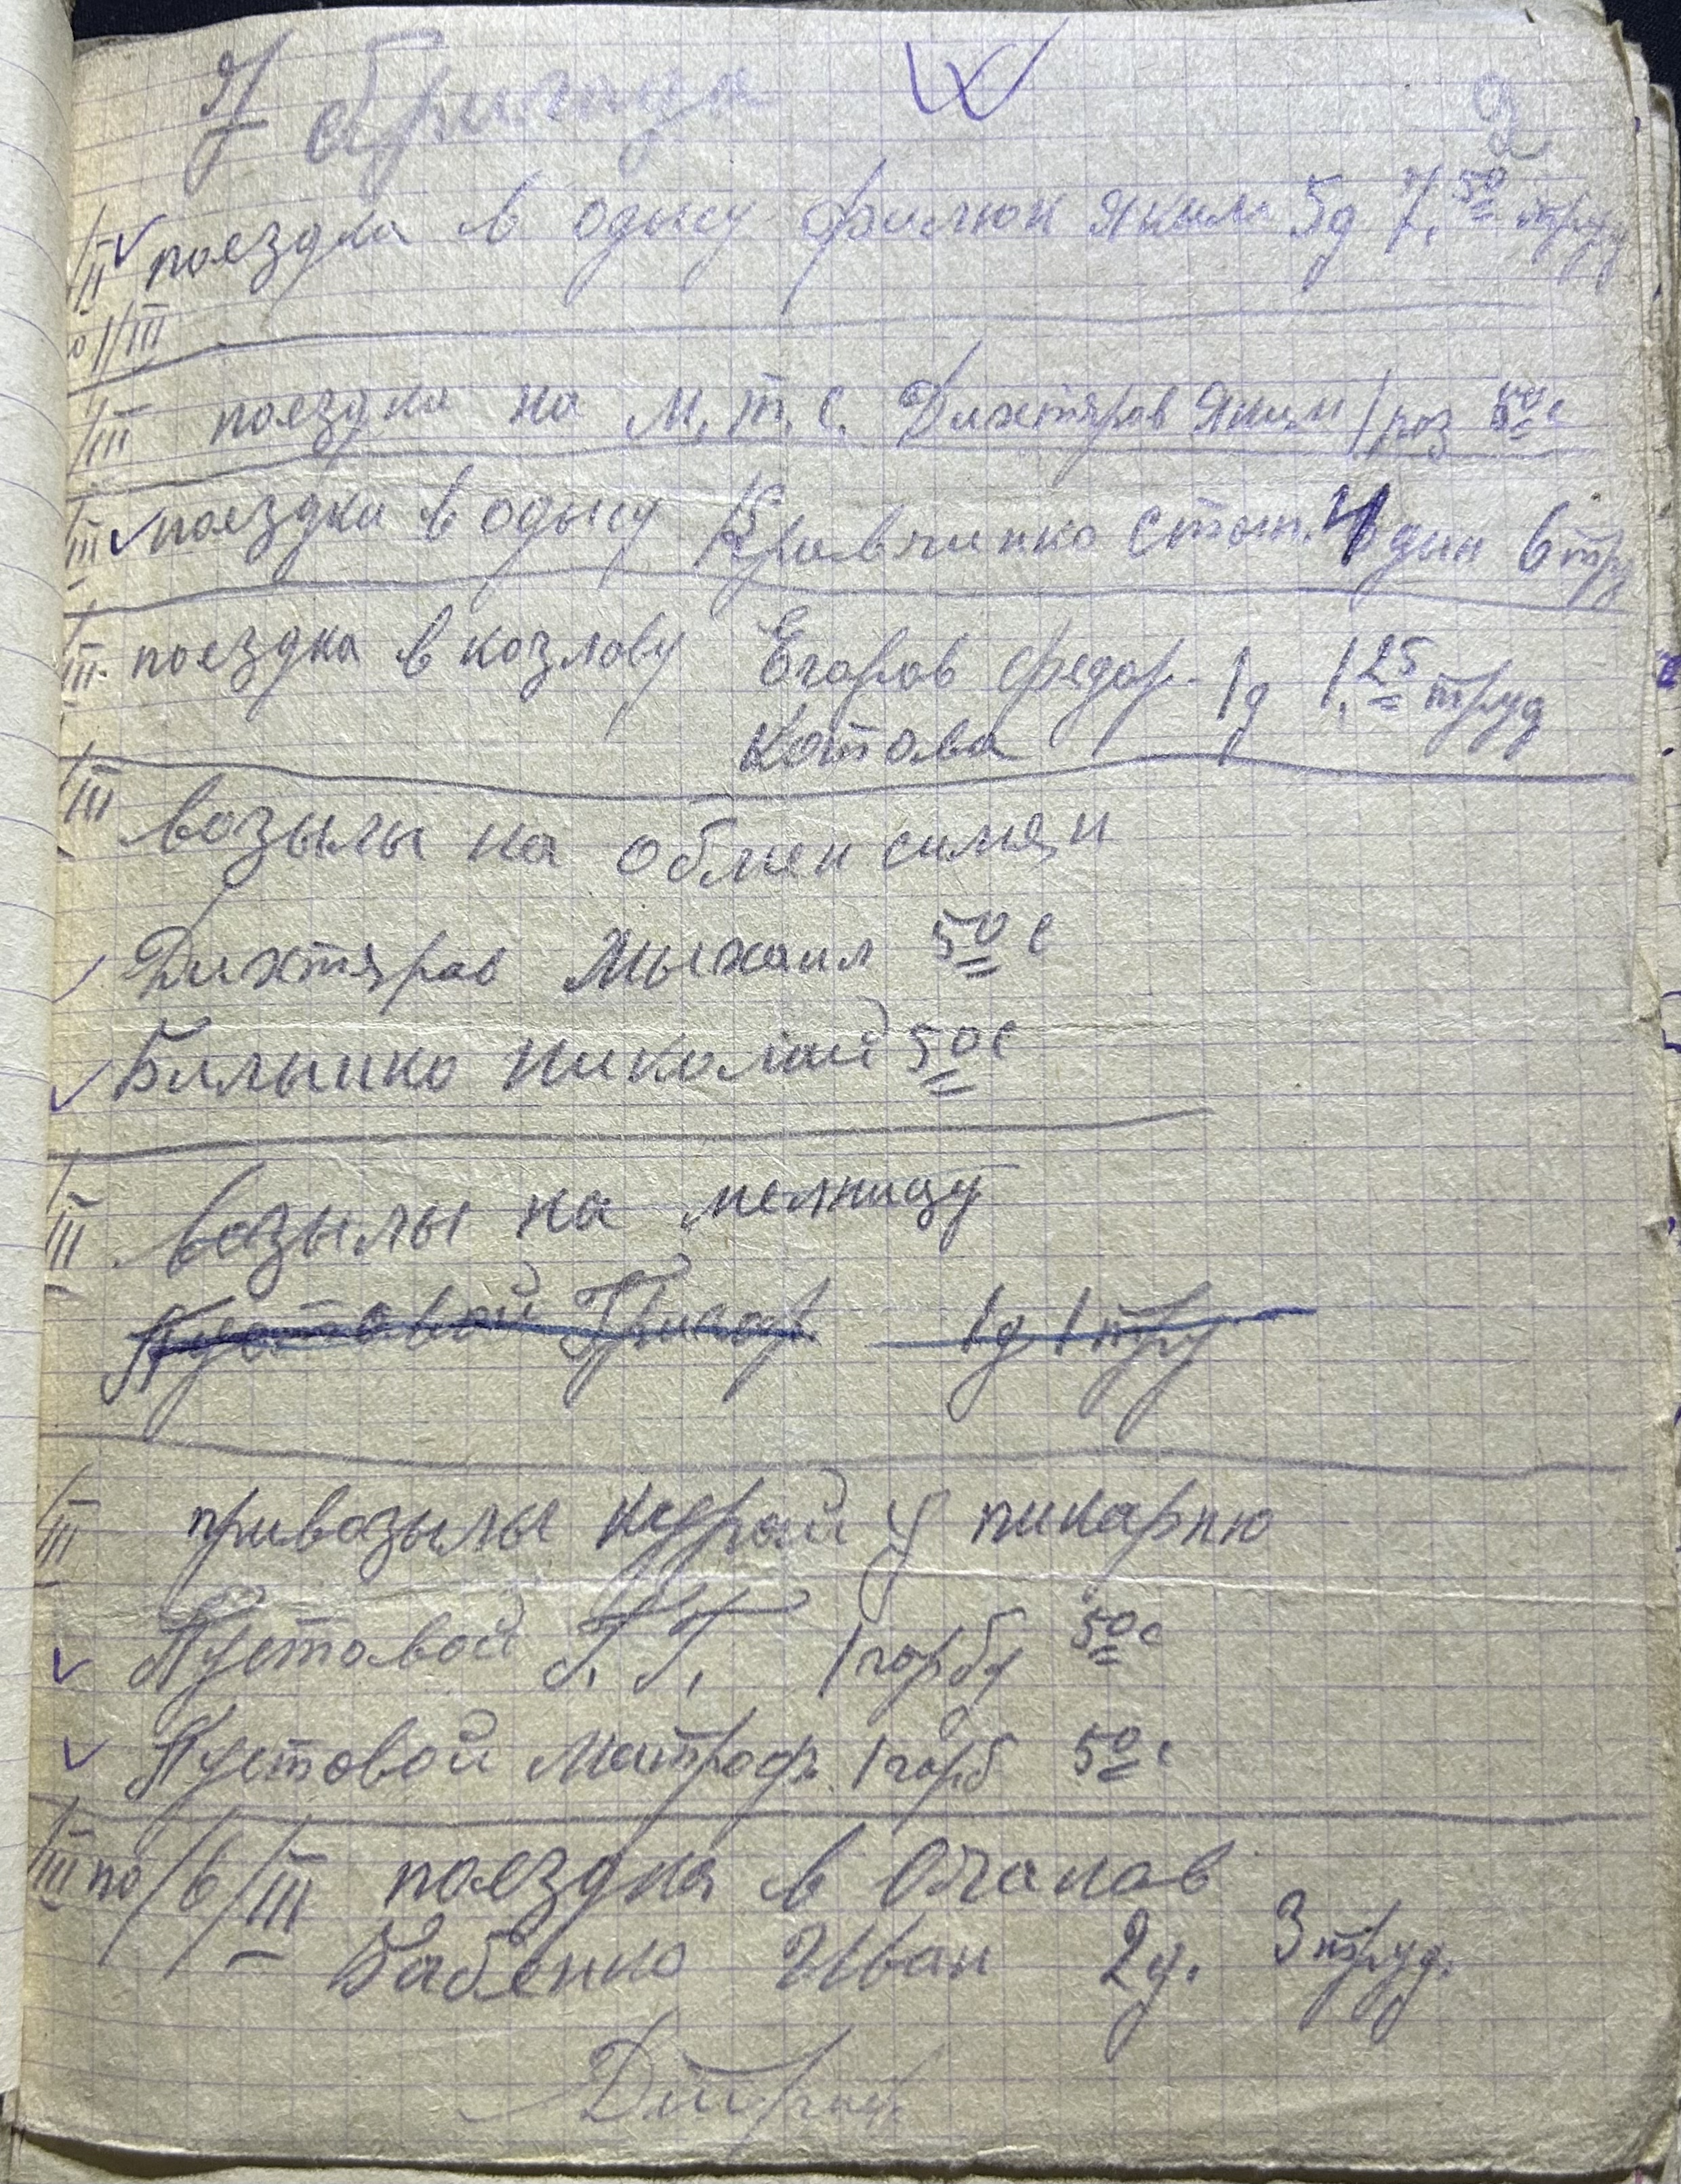 7 бригада
2
/II поездка в одысу Филюк Яким 5д 7.50 труд
по 1/III
/III поездка на М.т.с. Дихтяров Яким 1 роз 50с
/III поездка в одысу Кравчинко Степ. 4 дня 6 тру
/III поездка в козлову Егоров Федор. 1д 1.25 труд
Котова
/III возылы на обмен симян
Дихтяров Мыхаил 50с
Билынко николай 50с
/III возылы на мелницу
Пустовой Григор. 1д 1 тру
/III привозылы курай у пикарню
Пустовой Г.Г. 1 горбу 50с
Пустовой Митроф. 1 горб 50с
/III по /6/III поездка в Очаков
Бабенко Иван 2д. 3 труд.